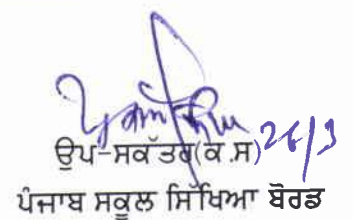 26/3
ਉਪ-ਸਕੱਤਰ(ਕ.ਸ)
ਪੰਜਾਬ ਸਕੂਲ ਸਿੱਖਿਆ ਬੋਰਡ